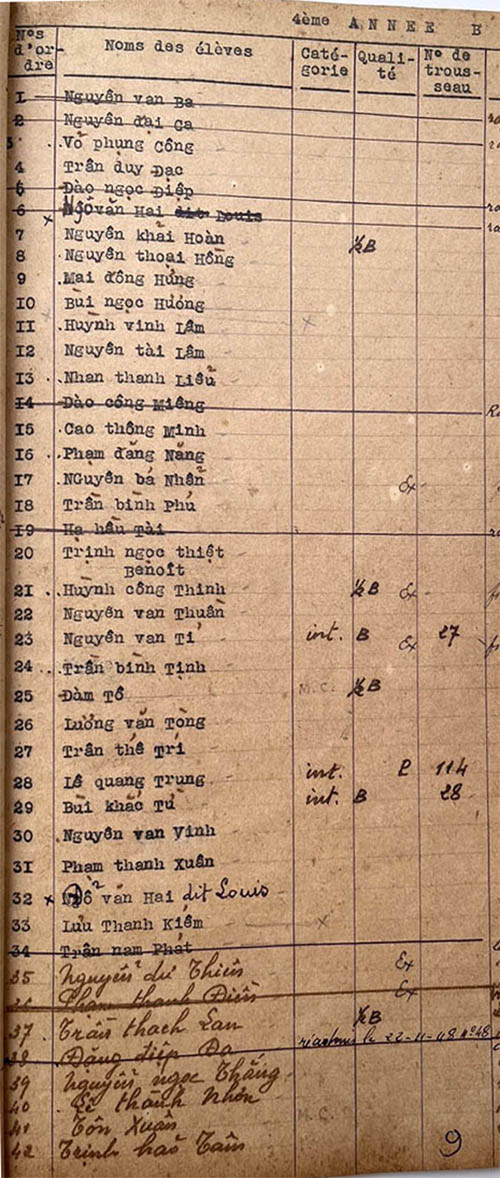 4ème ANNEE B
Nos d'or-dre Noms des élèves Caté-gorie Quali-té N° de trous-seau
1 Nguyên van Ba
2 Nguyên đại Ca
3 Võ phụng Công
4 Trân duy Đạc
5 Đào ngọc Điệp
6 Ngô văn Hai dit Louis
7 Nguyên khải Hoàn ½B
8 Nguyên thoại Hồng
9 Mai đông Hưng
10 Bùi ngọc Hưởng
11 Huỳnh vinh Lâm x
12 Nguyên tài Lâm
13 Nhan thanh Liểu
14 Đào công Miêng
15 Cao thông Minh
16 Phạm đăng Năng
17 NGuyên bá Nhẫn Ex
18 Trần bình Phú
19 Hạ hầu Tài
20 Trịnh ngọc thiệt
Benoît
21 Huỳnh công Thinh ½B Ex
22 Nguyên van Thuần
23 Nguyên van Tỉ int. B Ex 27
24 Trần bình Tịnh
25 Đàm Tô M.C. ½B
26 Lương văn Tòng
27 Trân thế Trí
28 Lê quang Trung int. P 114
29 Bùi khắc Tử int. B 28
30 Nguyên van Vinh
31 Phạm thanh Xuân
32 x Ngô văn Hai dit Louis
33 Lưu Thanh Kiêm x
34 Trân nam Phát
35 Nguyễn dư Thiên Ex
36 Phạm thanh Điền Ex
37 Trần thạch Lan ½B
38 Đặng điệp Đa réadmis le 22-11-48 N°48
39 Nguyễn ngọc Thắng
40 Lê thành Nhơn
41 Tôn Xuân M.C.
42 Trịnh hảo Tâm 9